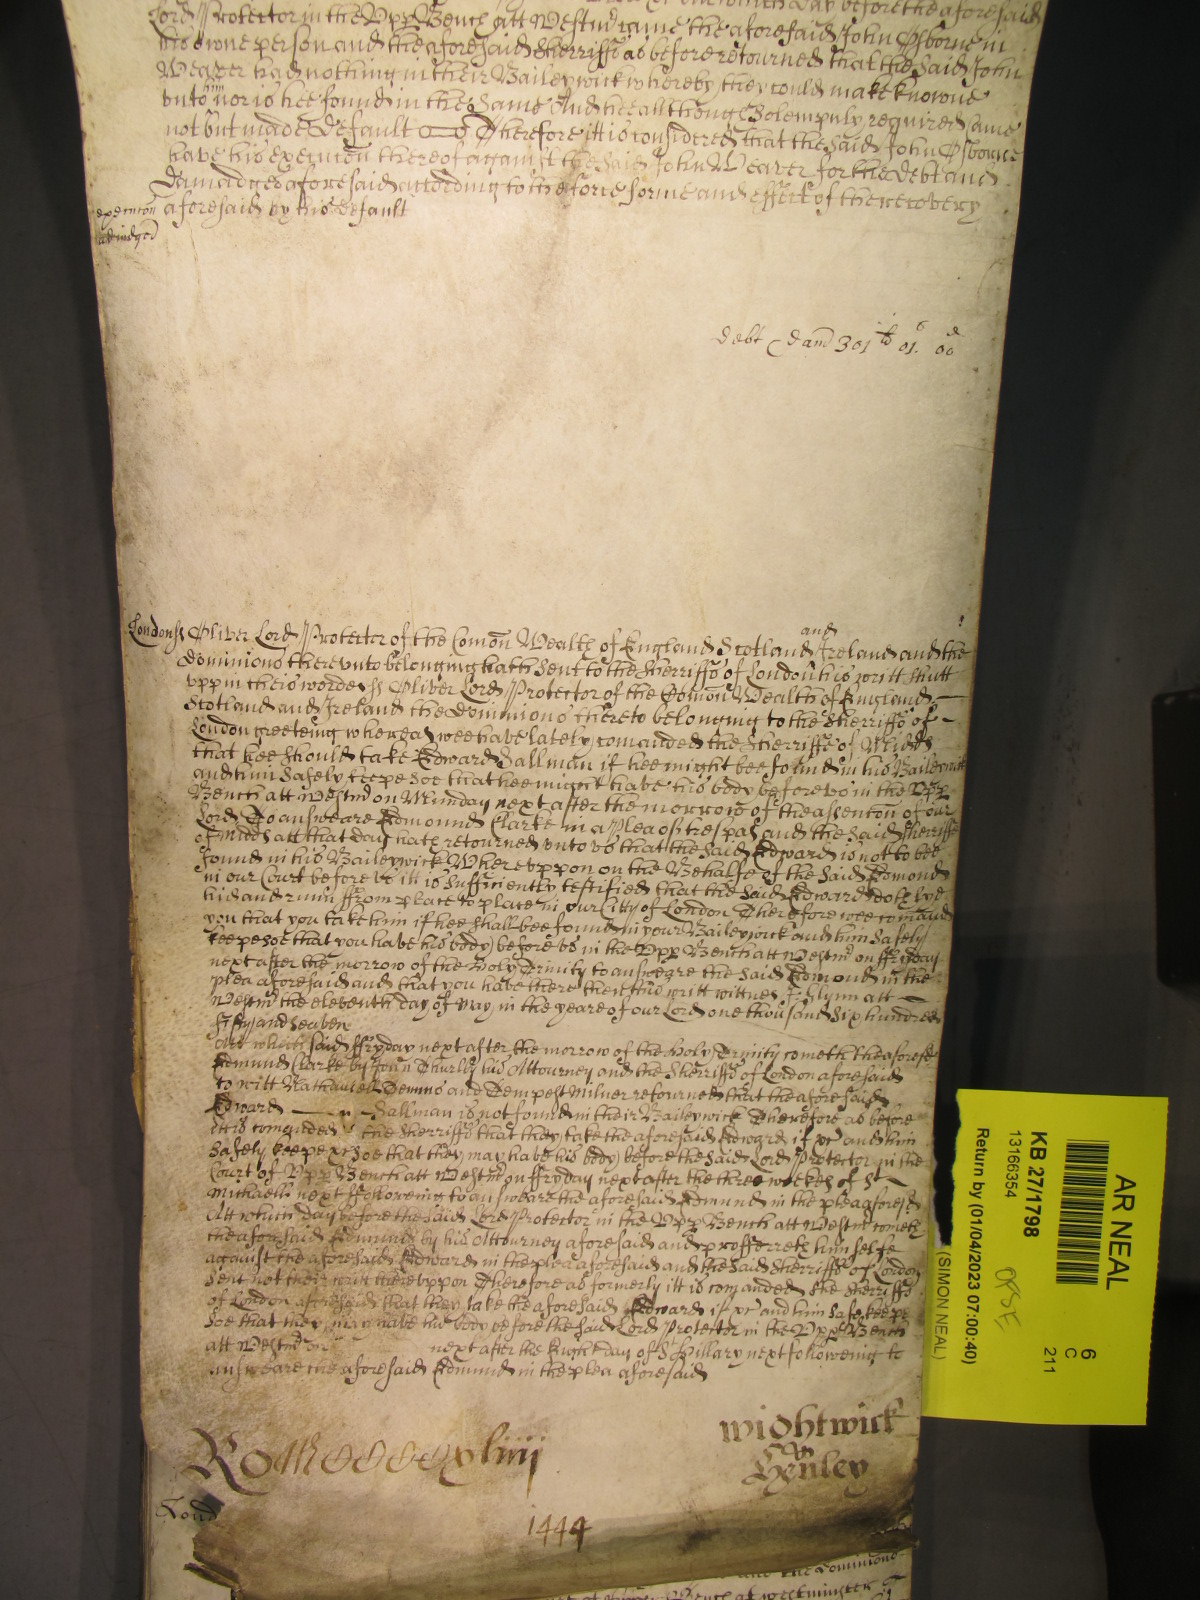 before the aforesaid
Lord Protector in the Upp Bench att Westm̃ came the aforesaid John Osborne in
his owne person and the aforesaid Sherriffs as before retourned that the said John
Weaver had nothing in their Baileywick whereby they could make knowne
unto him nor is hee found in the same And hee although Solempnly required came
not but made Default Therefore itt is considered that the said John Osborne
have his execucōn thereof against the said John Weaver for the debt and
damadges aforesaid according to the force forme and effect of the recovery
aforesaid by his default
execucōn
adiudged
debt & dam̄ 301 li 01 s 00 d
London ss Oliver Lord Protector of the Com̄on Wealth of England Scotland and Ireland and the
dominions thereunto belonging hath sent to the Sherriffs of London his writt shutt
upp in theis wordes ss Oliver Lord Protector of the Com̄on Wealth of England
Scotland and Ireland the dominions thereto belonging to the Sherriffs of
London greeteing whereas wee have lately com̄anded the Sherriffe of Midd̃s
that hee should take Edward Sallman if hee might bee found in his Baileywick
and him safely keepe soe that hee might have his body before us in the Upp
Bench att Westm̃ on Munday next after the morrow of the assention of our
Lord To answeare Edmound Clarke in a Plea of trespas and the said Sherriffe
of Midd̃s att that day hath retourned unto us that the said Edward is not to bee
found in his Baileywick Whereuppon on the Behalfe of the said Edmond
in our Court before us itt is sufficiently testified that the said Edward doth lye
hid and runn ffrom place to place in our Citty of London Therefore wee com̄aund
you that you take him if hee shall bee found in your Baileywick and him safely
keepe soe that you have his body before us in the Upp Bench att Westm̃ on ffryday
next after the morrow of the Holy Trinity to answeare the said Edmond in the
plea aforesaid and that you have there then this writt wittnes J: Glynn att
Westm̃ the eleventh day of May in the yeare of our Lord one thousand Six hundred
fifty and Seaven
Att which said ffryday next after the morrow of the Holy Trinity cometh the aforesd
Edmund Clarke by John Thurley his Attourney and the Sherriffs of London aforesaid
to witt Nathaniell Temms and Tempest Milner retourned that the aforesaid
Edward Sallman is not found in their Baileywick Therefore as before
itt is com̄anded the Sherriffs that they take the aforesaid Edward if &c and him
safely keepe &c soe that they may have his body before the said Lord Protector in the
Court of Upp Bench att Westm̃ on ffryday next after the three weekes of St
Michaell next ffolloweing to answeare the aforesaid Edmund in the plea aforesd
Att which day before the said Lord Protector in the Upp Bench att Westm̃ cometh
the aforesaid Edmund by his Attourney aforesaid and profferreth him selfe
against the aforesaid Edward in the plea aforesaid and the said Sherriffs of London
sent not their writt thereuppon Therefore as formerly itt is com̄anded the Sherriffs
of London aforesaid that they take the aforesaid Edward if &c and him safe keepe
soe that they may have his body before the said Lord Protector in the Upp Bench
att Westm̃ on next after the Eight day of St Hillary next followeing to
answeare the aforesaid Edmund in the plea aforesaid
Wightwick
Henley
xliiij
Lond
1444
and the dominions
Bench at Westminster
AR NEAL
6
C
211
KB 27/1798
13166354
Return by (01/04/2023 07:00:40)
(SIMON NEAL)